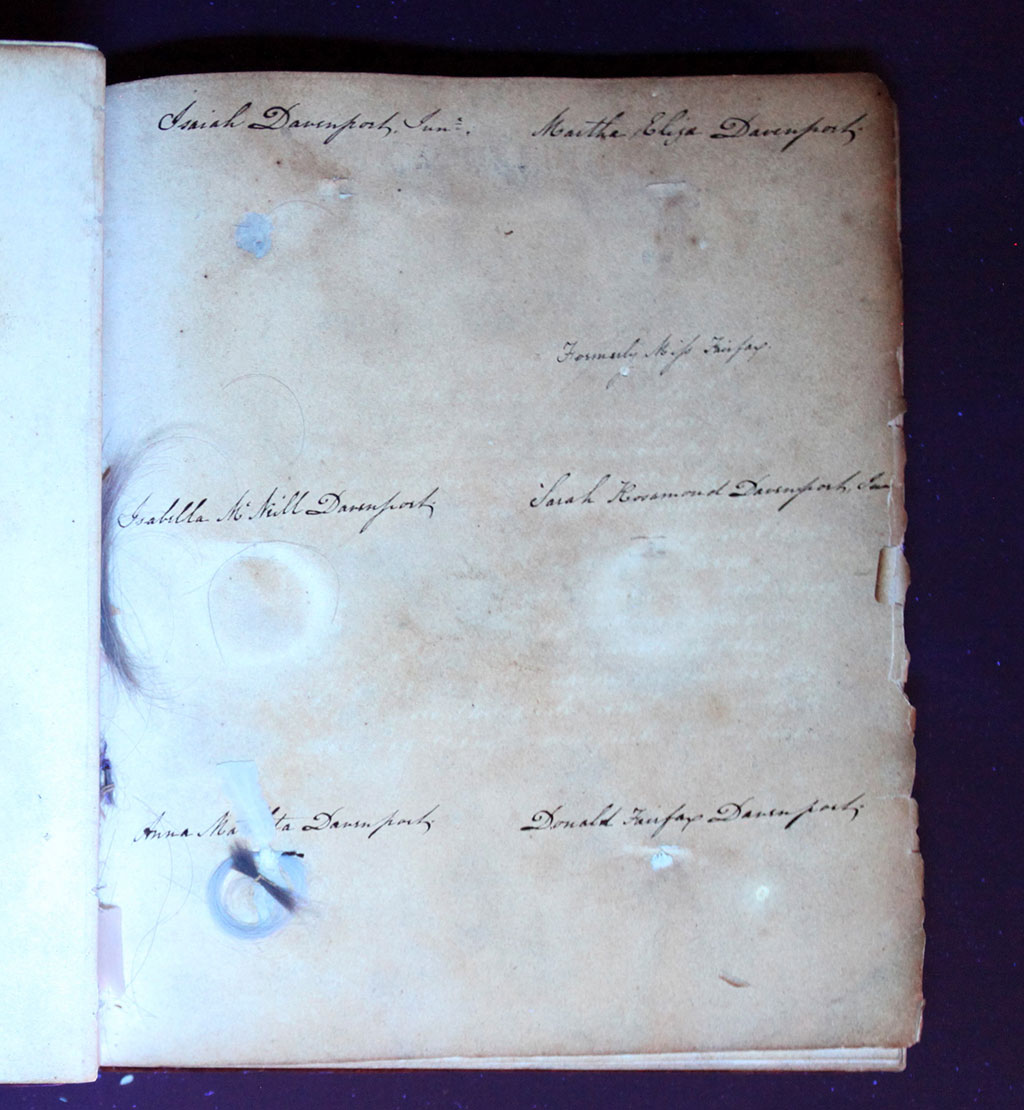 Isaiah Davenport. Junr.
Martha Eliza Davenport.
Formerly Miss Fairfax.
Isabella McNeill Davenport.
Sarah Rosamond Davenport. Jun
Anna Davenport.
Donald Fairfax Davenport.